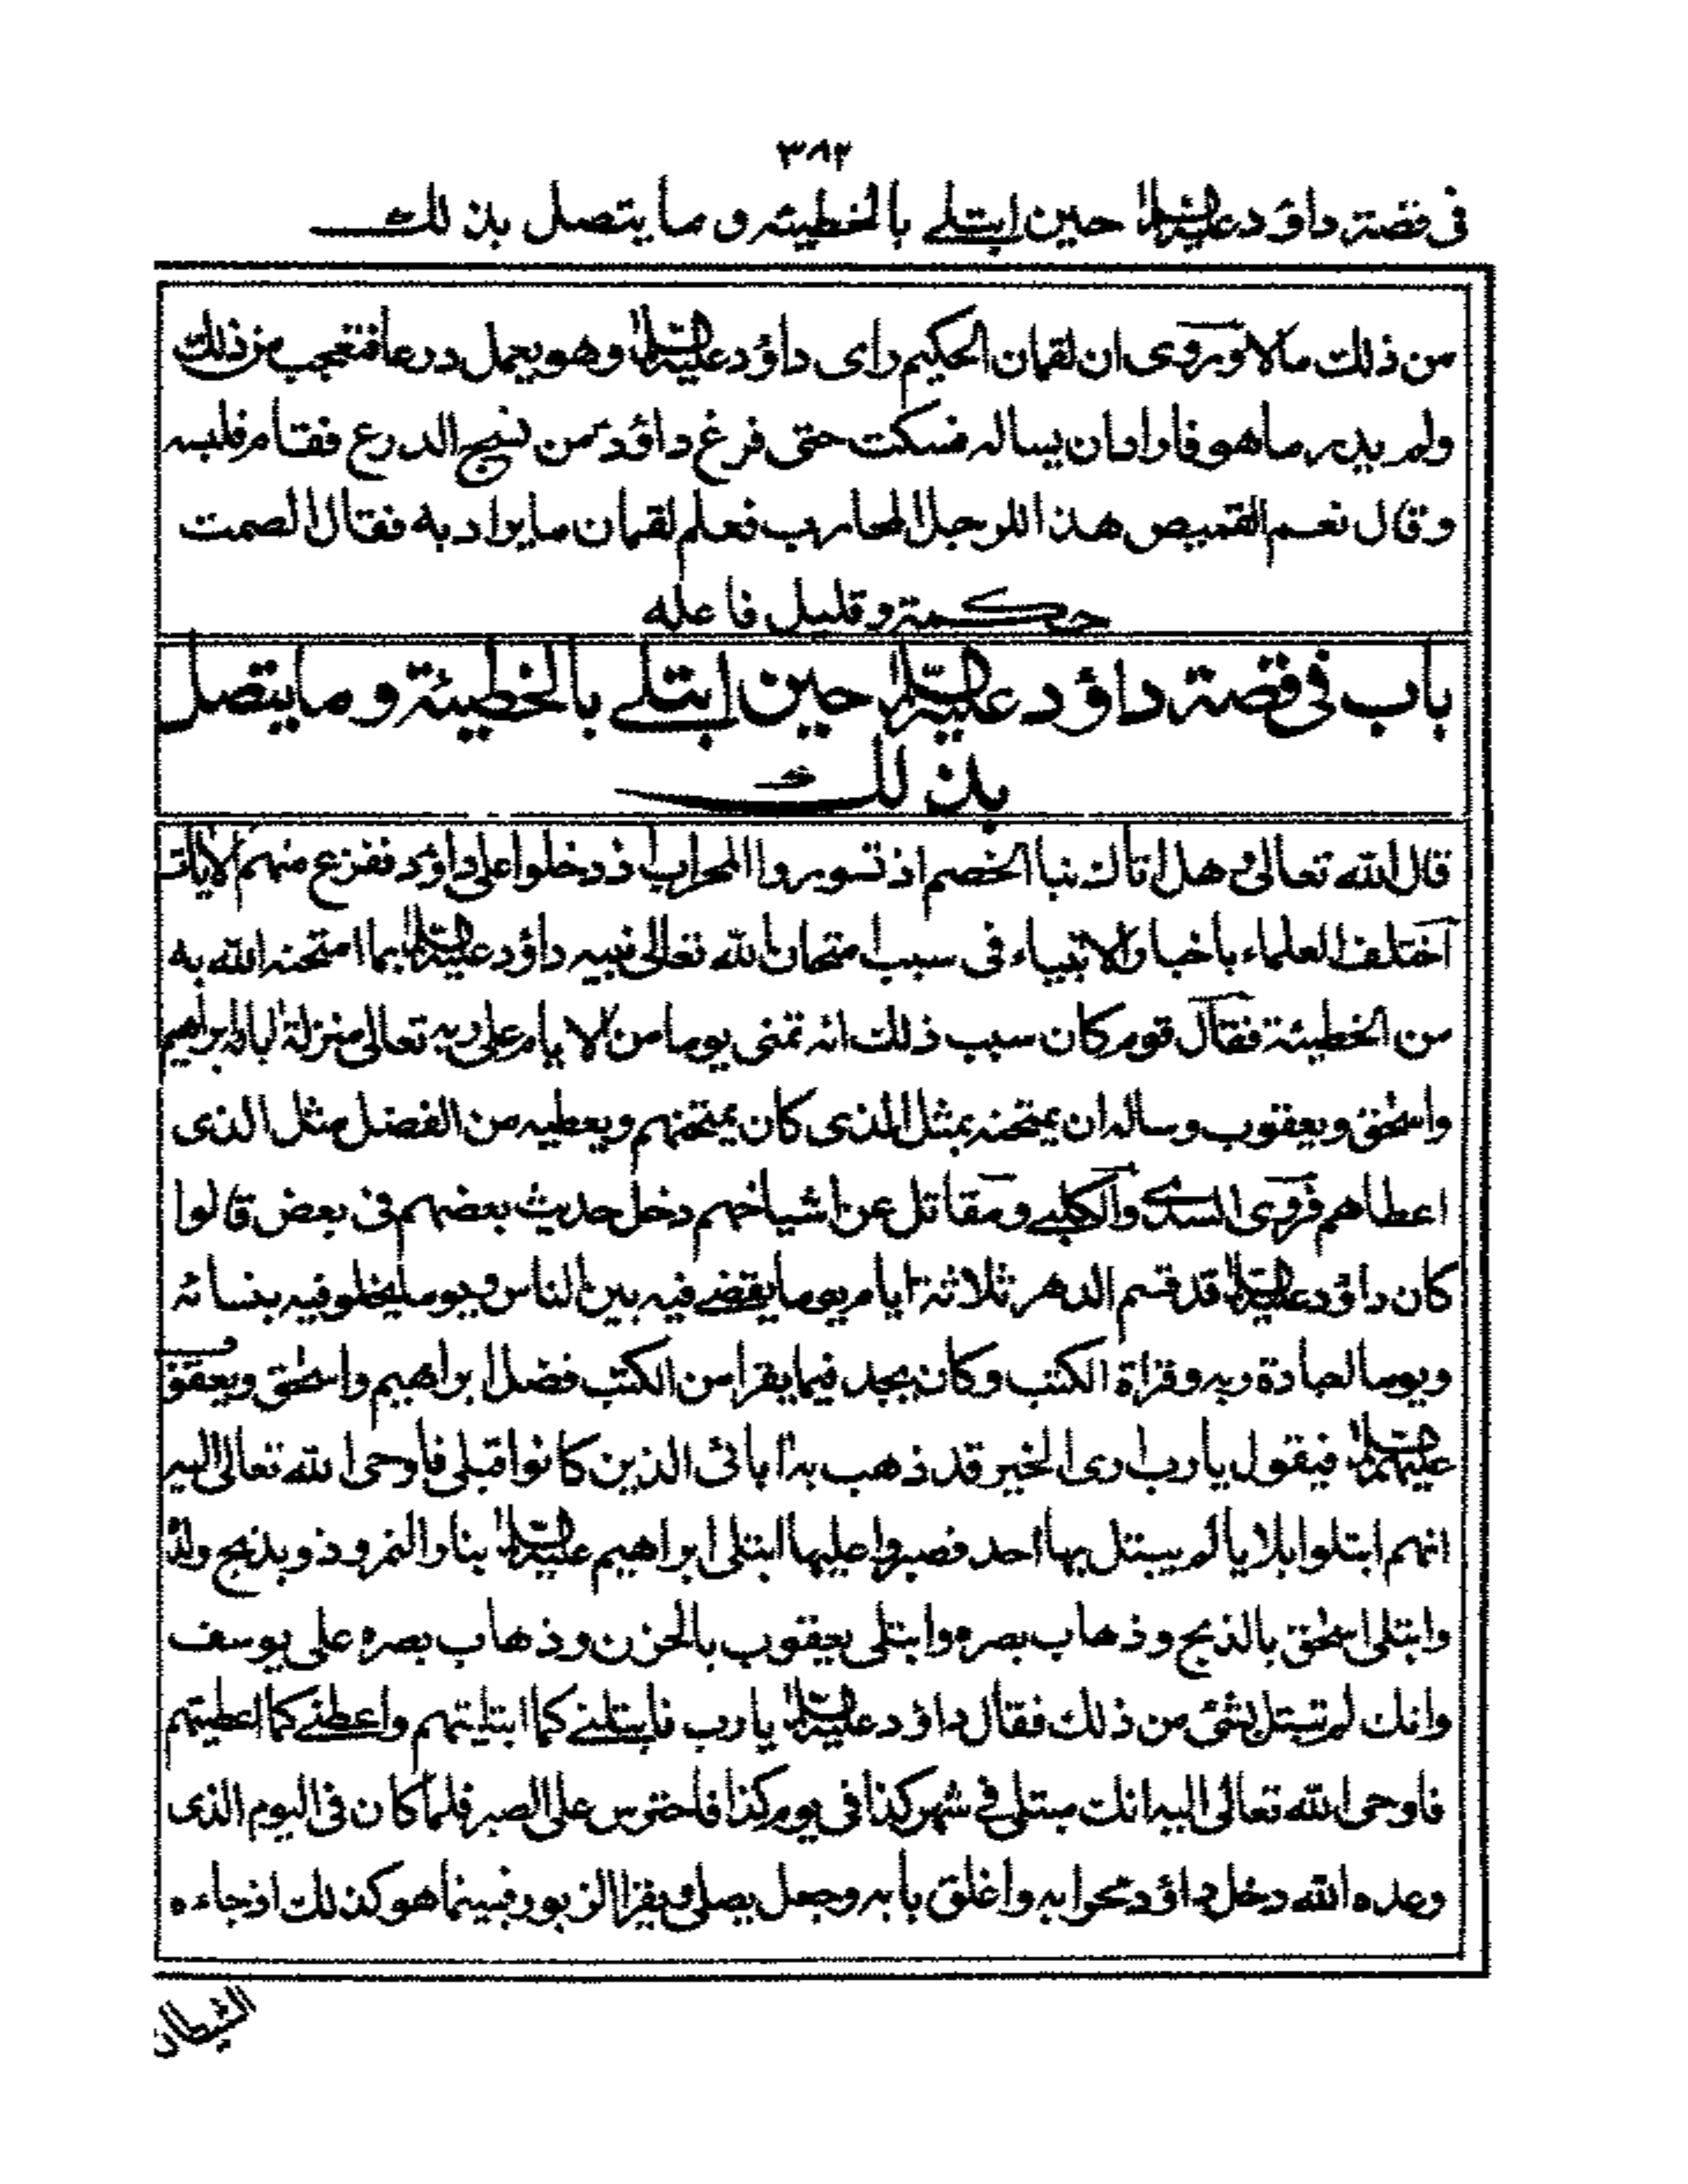 ٣٨٢
فى قصة داؤد عليه السلام حين ابتلے بالخطيئه و ما يتصل بذلك
من ذلك مالا وروى ان لقمان الحكيم راى داؤد عليه السلام وهو يعمل درعا فتعجب من ذلك
ولم يدر ما هو فاراد ان يساله فسكت حتى فرغ داؤد من نسج الدرع فقام فلبسه
وقال نعم القميص هذا للرجل المحارب فعلم لقمان ما يراد به فقال الصمت
حكمة وقليل فاعله
باب فى قصة داؤد عليه السلام حين ابتلے بالخطيئة و ما يتصل
بذلك
قال الله تعالى هل اتاك نبا الخصم اذ تسوروا المحراب اذ دخلوا على داؤد ففزع منهم الايات
اختلف العلماء باخبار الانبياء فى سبب امتحان الله تعالى نبيه داؤد عليه السلام بما امتحنه الله به
من الخطيئة فقال قوم كان سبب ذلك انه تمنى يوما من الايام على ربه تعالى منزلة ابائه ابراهيم
واسحق ويعقوب وساله ان يمتحنه بمثل الذى كان يمتحنهم ويعطيه من الفضل مثل الذى
اعطاهم فروى السدى والكلبے ومقاتل عن اشياخهم دخل حديث بعضهم فى بعض قالوا
كان داؤد عليه السلام قد قسم الدهر ثلاثة ايام يوما يقضے فيه بين الناس ويوما يخلو فيه بنسائه
ويوما لعبادة ربه وقراة الكتب وكان يجد فيما يقرا من الكتب فضل ابراهيم واسحق ويعقوب
عليهم السلام فيقول يا رب ارى الخير قد ذهب به ابائى الذين كانوا قبلى فاوحى الله تعالى اليه
انهم ابتلوا ببلايا لم يبتل بها احد فصبروا عليها ابتلى ابراهيم عليه السلام بنار النمروذ وبذبح ولده
وابتلى اسحق بالذبح وذهاب بصره وابتلى يعقوب بالحزن وذهاب بصره على يوسف
وانك لم تبتل بشئ من ذلك فقال داؤد عليه السلام يا رب فابتلنے كما ابتليتهم واعطنے كما اعطيتهم
فاوحى الله تعالى اليه انك مبتلى فے شهر كذا فى يوم كذا فاحترس على الصبر فلما كان فى اليوم الذى
وعده الله دخل داؤد محرابه واغلق بابه وجعل يصلى ويقرا الزبور فبينما هو كذلك اذ جاءه
الشيطان